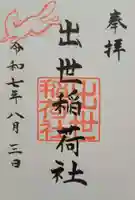 奉拝
出世稲荷社
令和七年八月三日
出世
稲荷社